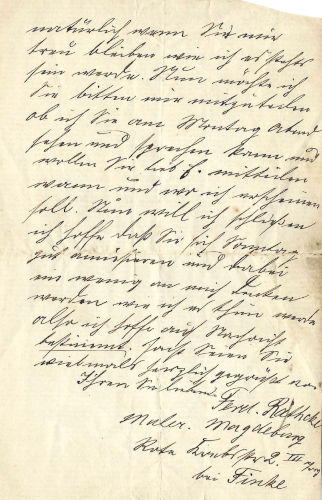 natürlich wenn Sie mir
treu bleiben wie ich es stehts
sein werde. Nun möchte ich
Sie bitten mir mitzuteilen
ob ich Sie am Montag Abend
sehen und sprechen kann und
wollen Sie mitteilen
wann und wo ich erscheinen
soll. Nun will ich schließen
ich hoffe daß Sie sich Sonntag
gut amüsieren und dabei
ein wenig an mich denken
werden wie ich es thun werde
also ich hoffe auf Nachricht
bestimmt. Seien Sie
vielmals herzlich gegrüßt von
Ihren Sie
Ferd. Rathcke
Maler. Magdeburg
Rote 2. III
bei Finke